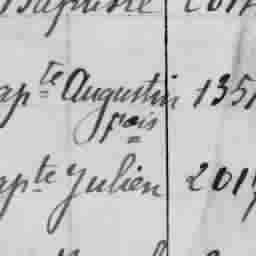 Baptiste 201
apte Augustin 1351
pais
apte Julien 2017